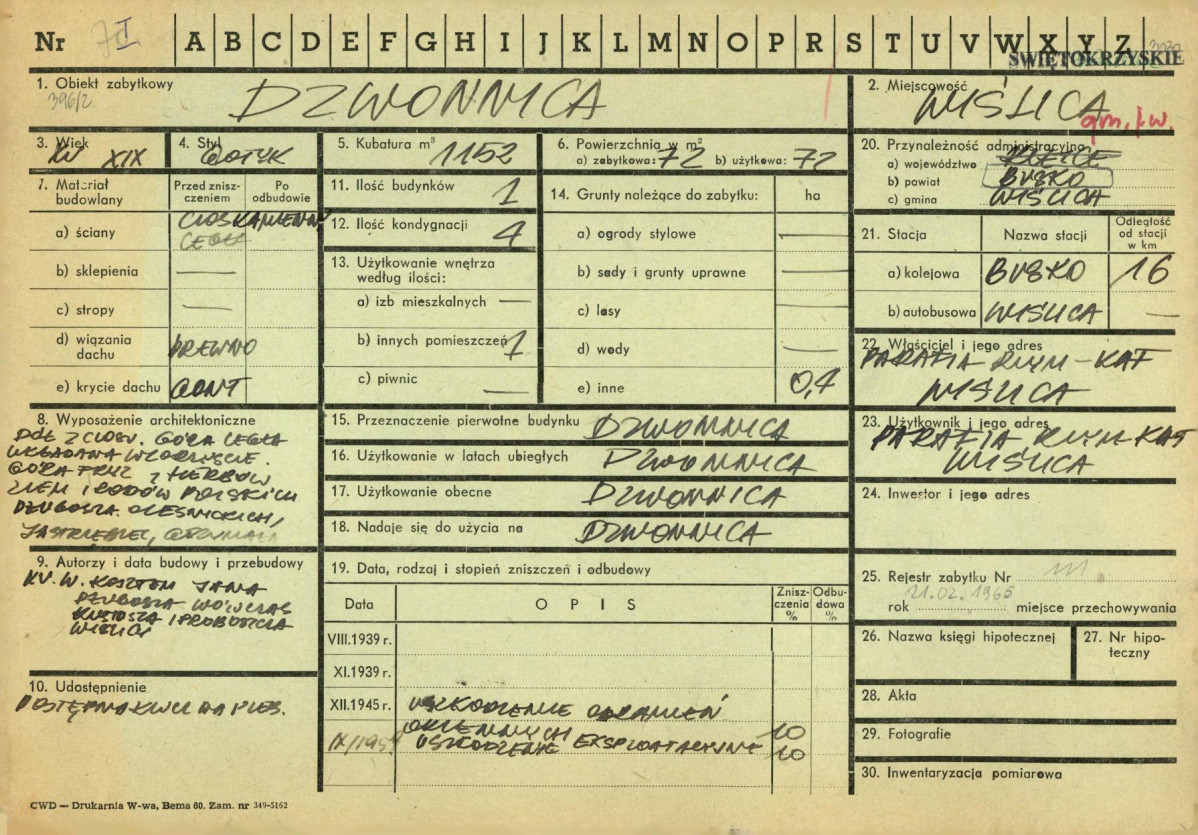 Nr
A B C D E F G H I J K L M N O P R S T U V W X Y Z
ŚWIĘTOKRZYSKIE
1. Obiekt zabytkowy
396/2
DZWONNICA
2. Miejscowość
WIŚLICA
gm. l.w.
3. Wiek
XV XIX
4. Styl
GOTYK
5. Kubatura m³
1152
6. Powierzchnia w m²
a) zabytkowa: 72 b) użytkowa: 72
20. Przynależność administracyjna
a) województwo KIELCE
b) powiat BUSKO
c) gmina WIŚLICA
7. Materiał budowlany
Przed zniszczeniem
Po odbudowie
a) ściany CIOS KAMIENNY
CEGŁA
b) sklepienia —
c) stropy —
d) wiązania dachu DREWNO
e) krycie dachu GONT
11. Ilość budynków 1
12. Ilość kondygnacji 4
13. Użytkowanie wnętrza według ilości:
a) izb mieszkalnych —
b) innych pomieszczeń 1
c) piwnic —
14. Grunty należące do zabytku: ha
a) ogrody stylowe —
b) sady i grunty uprawne —
c) lasy —
d) wody —
e) inne 0,4
21. Stacja
Nazwa stacji
Odległość od stacji w km
a) kolejowa BUSKO 16
b) autobusowa WIŚLICA —
22. Właściciel i jego adres
PARAFIA RZYM-KAT
WIŚLICA
8. Wyposażenie architektoniczne
DÓŁ Z CIOSU. GÓRA CEGŁA
UKŁADANA WZORZYŚCIE.
GÓRA FRYZ Z HERBÓW
ZIEM I RODÓW POLSKICH
DŁUGOSZA OLEŚNICKICH,
JASTRZĘBIEC,
15. Przeznaczenie pierwotne budynku DZWONNICA
16. Użytkowanie w latach ubiegłych DZWONNICA
17. Użytkowanie obecne DZWONNICA
18. Nadaje się do użycia na DZWONNICA
23. Użytkownik i jego adres
PARAFIA RZYM KAT
WIŚLICA
24. Inwestor i jego adres
9. Autorzy i data budowy i przebudowy
XV. W. KOSZTEM JANA
DŁUGOSZA WÓWCZAS
KUSTOSZA I PROBOSZCZA
WIŚLICY
10. Udostępnienie
DOSTĘPNA KLUCZ NA PLEB.
19. Data, rodzaj i stopień zniszczeń i odbudowy
Data
OPIS
Zniszczenia %
Odbudowa %
VIII.1939 r.
XI.1939 r.
XII.1945 r. USZKODZENIE OBRAMIEŃ
OKIENNYCH 10
USZKODZENIE EKSPLOATACYJNE 10
25. Rejestr zabytku Nr
rok 21.02.1965 miejsce przechowywania
26. Nazwa księgi hipotecznej
27. Nr hipoteczny
28. Akta
29. Fotografie
30. Inwentaryzacja pomiarowa
CWD — Drukarnia W-wa, Bema 60. Zam. nr 349-5162